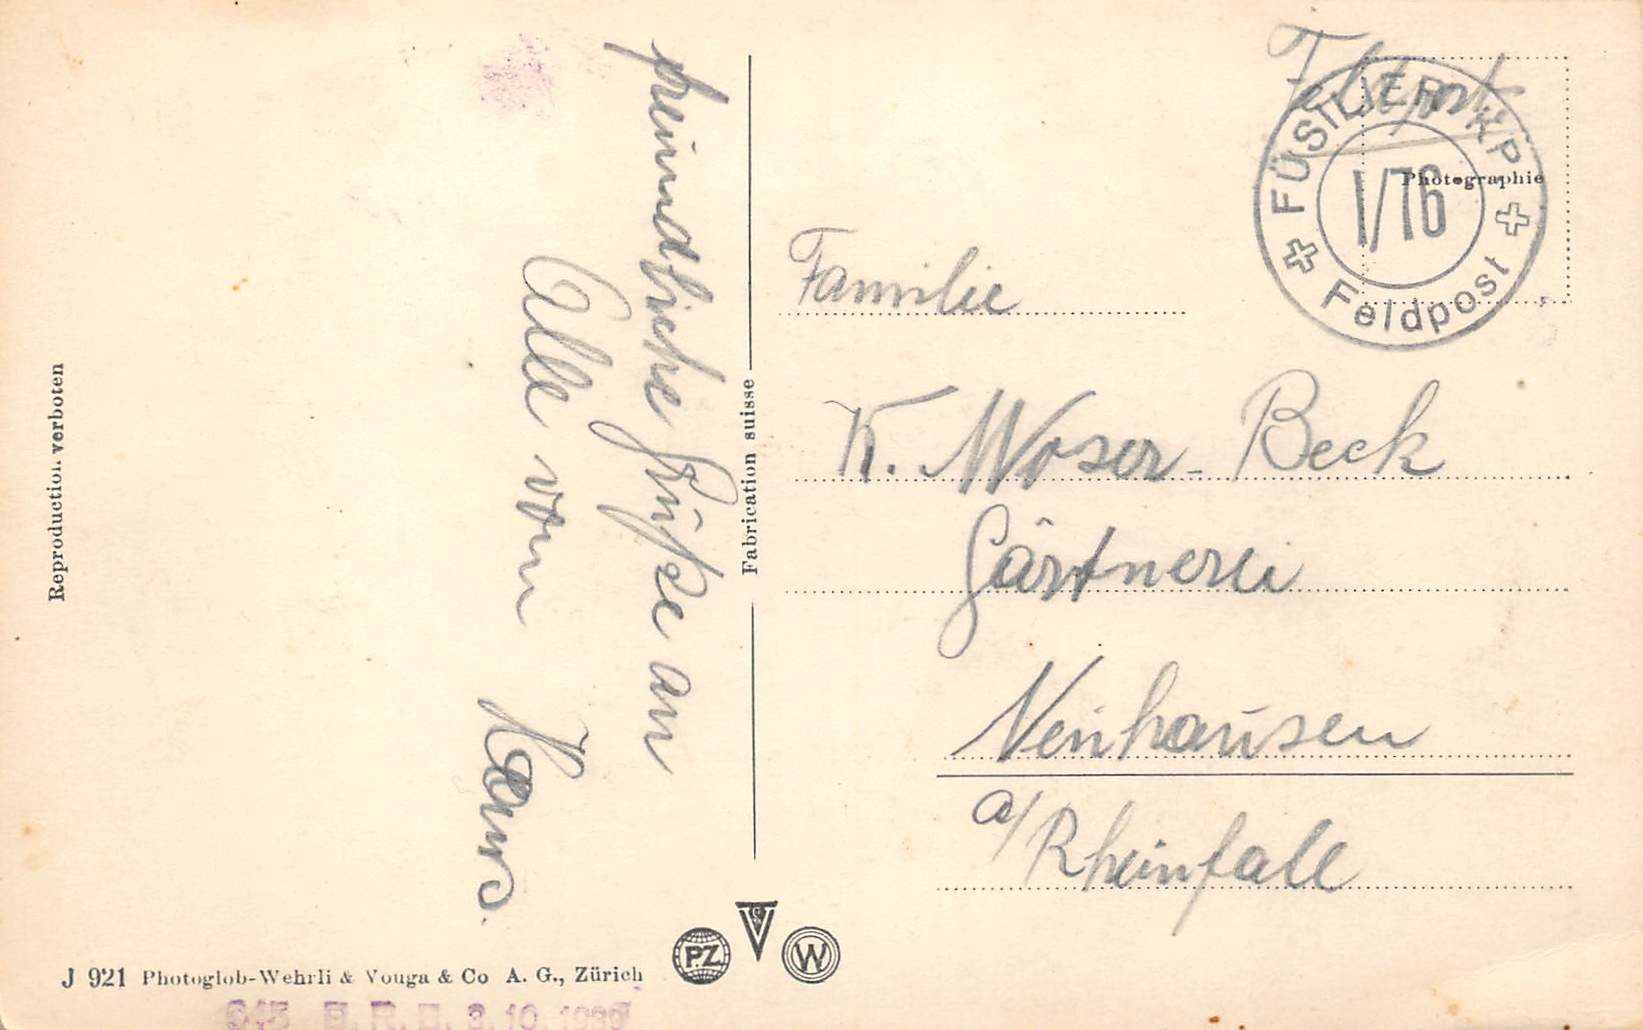 freundliche Grüße an
Alle vom
Hans.
Feldpost
FÜSILIER KP
I/76
Feldpost
Photographie
Familie
K. Moser-Beck
Gärtnerei
Neuhausen
a/Rheinfall
Fabrication suisse
Reproduction verboten
J 921 Photoglob-Wehrli & Vouga & Co A. G., Zürich
P.Z.
W
B. R. B. 3. 10. 1939